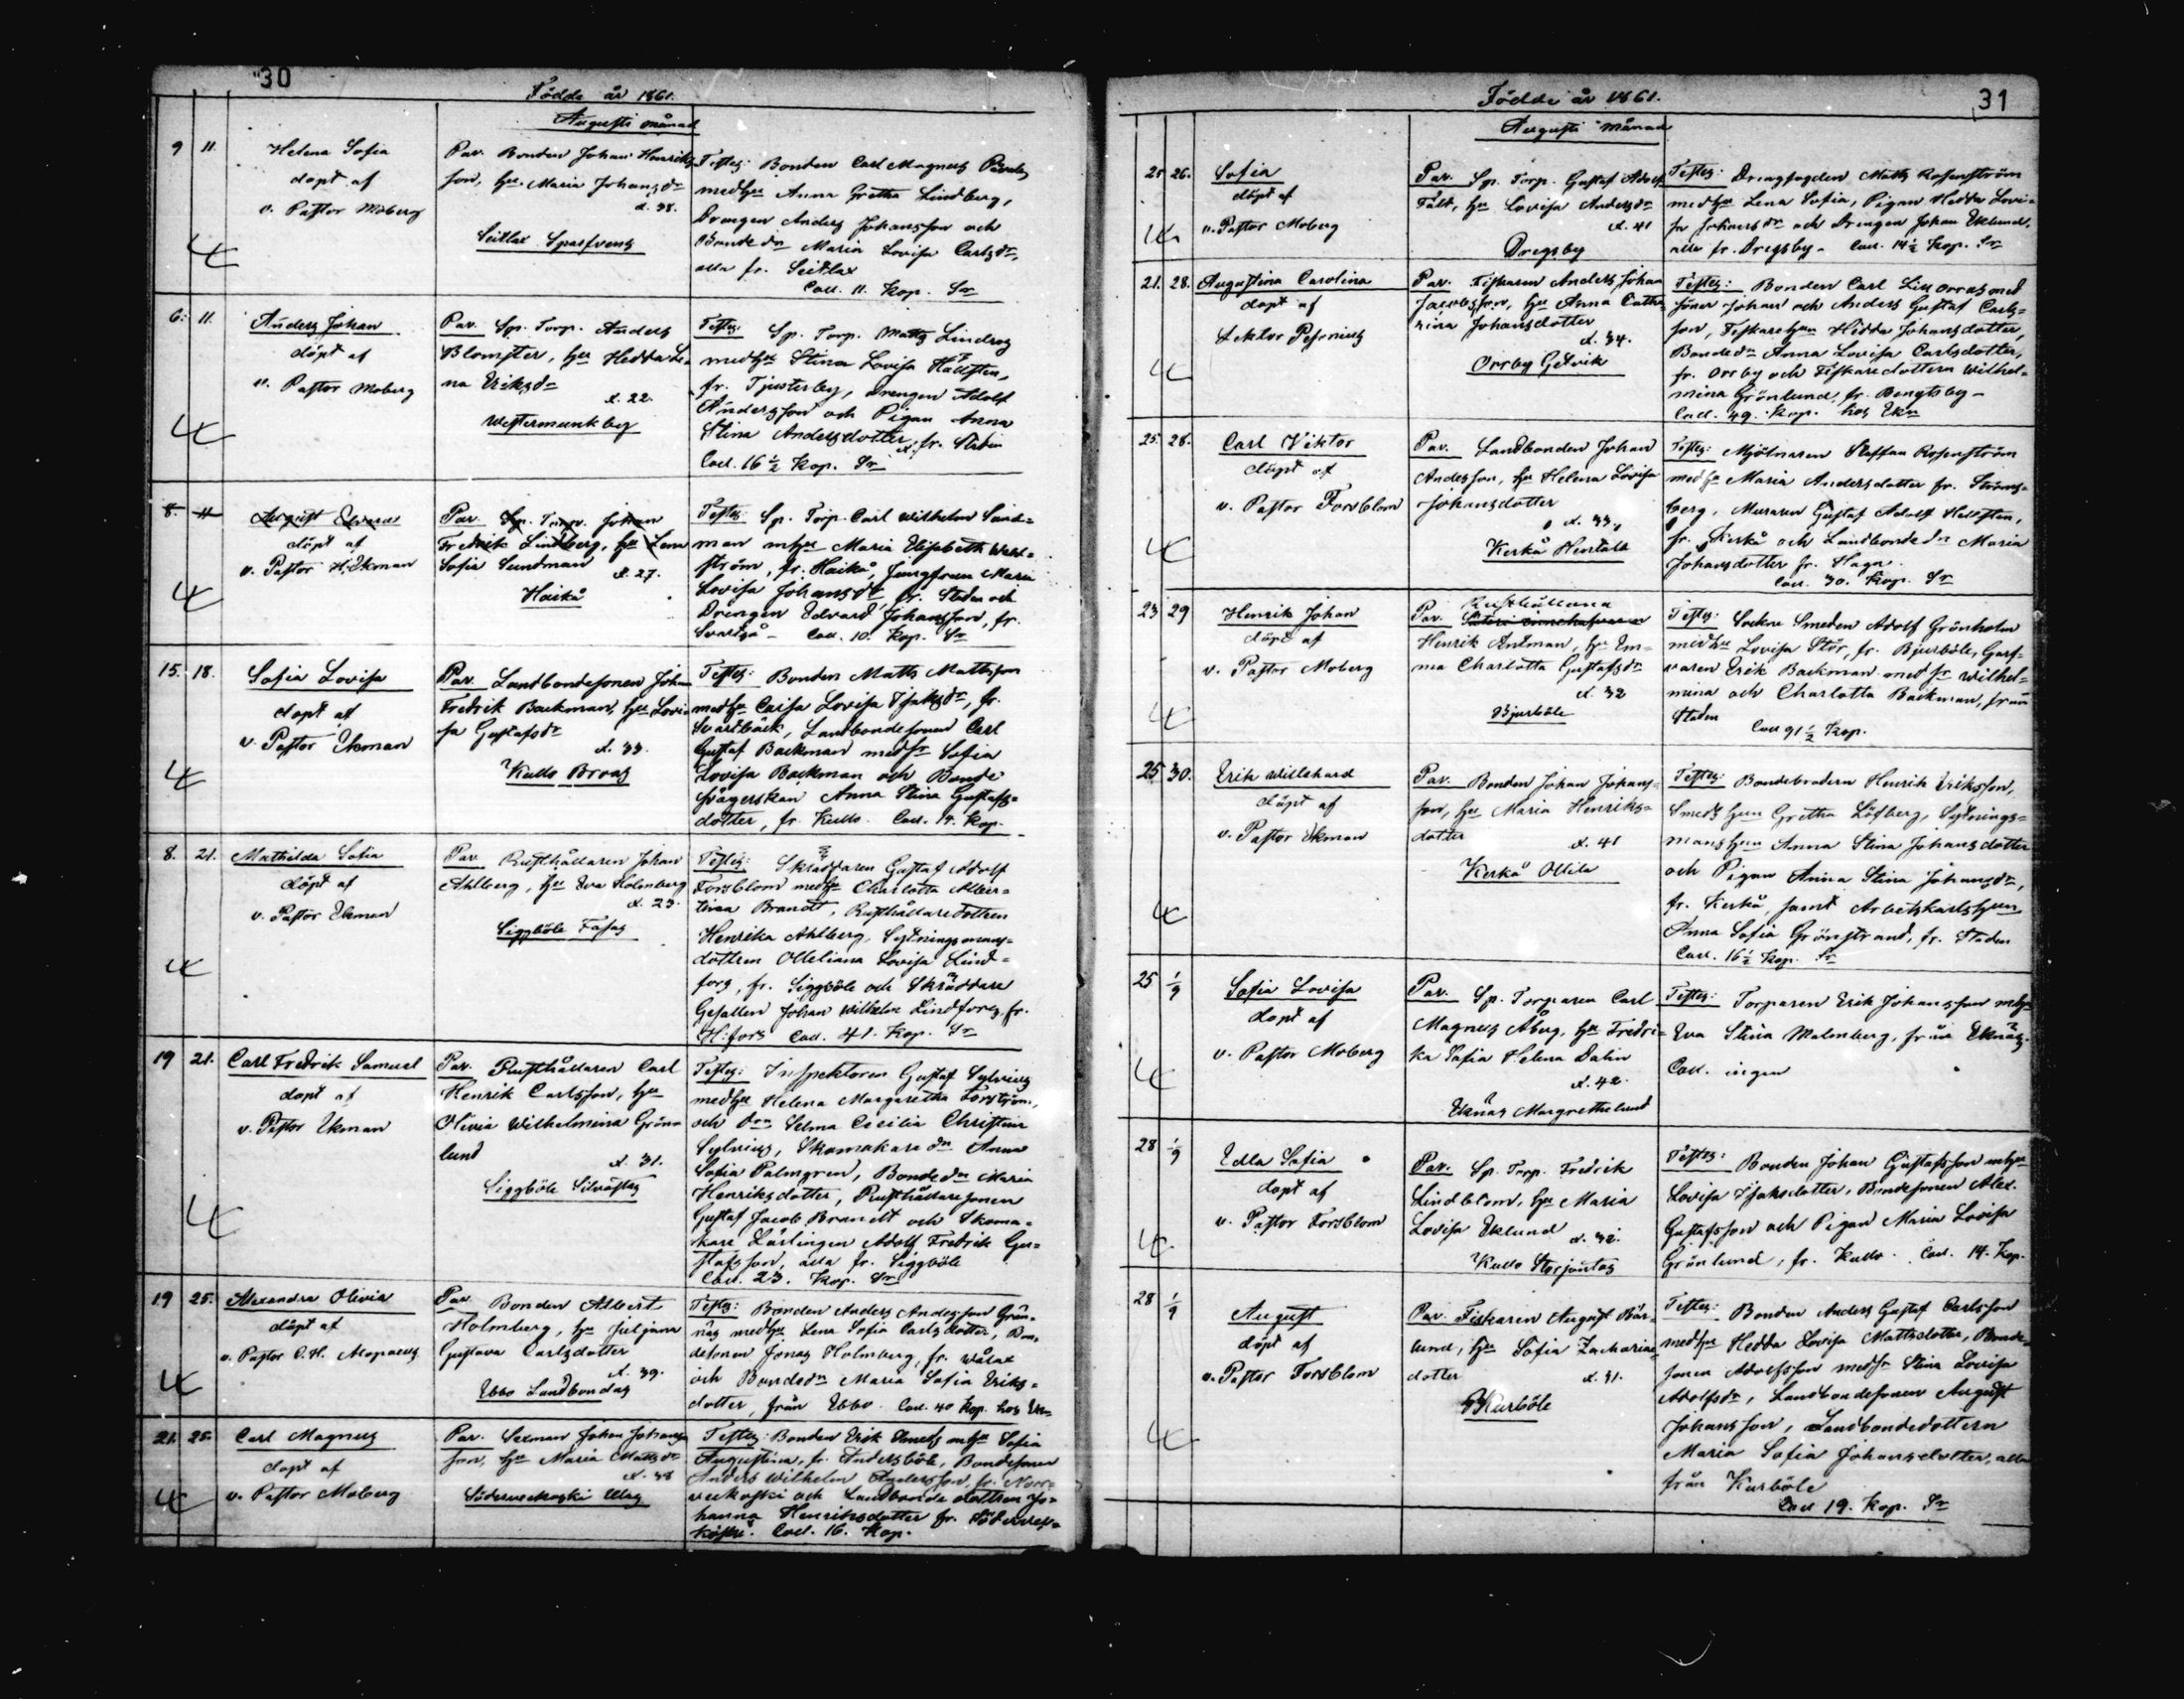 30
Födde år 1861.
Augusti månad
9 11. Helena Sofia
döpt af
v. Pastor Moberg
Par. Bonden Johan Henriks
son, hu Maria Johansdr
d. 38.
Seitlax Sparfvens
Testes: Bonden Carl Magnus
medhu Anna Gretha Lindberg,
Drengen Anders Johansson och
Bondedn Maria Lovisa Carlsdr,
alla fr. Seitlax
Coll. 11. Kop. Sr
6. 11. Anders Johan
döpt af
v. Pastor Moberg
Par. Sp. Torp. Anders
Blomster, hu Hedda Le
na Eriksdr
d. 22.
Westermunkby
Testes: Sp. Torp. Matts Lindros
medhu Stina Lovisa Hällsten,
fr. Tjusterby, Drengen Adolf
Andersson och Pigan Anna
Stina Andersdotter, fr. Staden
Coll. 16 1/2 Kop. Sr
8. 11 August Edvard
döpt af
v. Pastor H. Ekman
Par. Sp. Torp. Johan
Fredrik Lindberg, hu Lena
Sofia Sundman
d. 27.
Haikå
Testes: Sp. Torp. Carl Wilhelm Sand=
man mhu Maria Elisabeth Wahl=
ström, fr. Haikå, Jungfrun Maria
Lovisa Johansdr fr. Staden och
Drengen Edvard Johansson, fr.
Svartså - Coll. 10. Kop. Sr
15. 18. Sofia Lovisa
döpt af
v. Pastor Ekman
Par. Landbondesonen Johan
Fredrik Backman, hu Lovi=
sa Gustafsdr
d. 33.
Kullo Broas
Testes: Bonden Matts Mattsson
medhu Caisa Lovisa Isaksdr, fr.
Svartbäck, Landbondesonen Carl
Gustaf Backman medhr Sofia
Lovisa Backman och Bonde
svägerskan Anna Stina Gustafs=
dotter, fr. Kullo. Coll. 14. Kop.
8. 21. Mathilda Sofia
döpt af
v. Pastor Ekman
Par. Rusthållaren Johan
Ahlberg, hu Eva Holmberg
d. 23.
Siggböle Fasas
Testes: Skräddaren Gustaf Adolf
Forsblom medhu Charlotta Alber=
tina Brandt, Rusthållaredottren
Henrika Ahlberg, Sytningsmans=
dottren Olleliana Lovisa Lind=
fors, fr. Siggböle och Skräddare
Gesällen Johan Wilhelm Lindfors, fr.
H:fors Coll. 41. Kop. Sr
19 21. Carl Fredrik Samuel
döpt af
v. Pastor Ekman
Par. Rusthållaren Carl
Henrik Carlsson, hu
Olivia Wilhelmina Grön=
lund
d. 31.
Siggböle Silvästes
Testes: Inspektoren Gustaf Sylvius
medhu Helena Margaretha Forström,
och Drn Selma Cecilia Christine
Sylvius, Skomakare dn Anna
Sofia Palmgren, Bondedn Maria
Henriksdotter, Rusthållaresonen
Gustaf Jacob Brandt och Skoma=
kare Lärlingen Adolf Fredrik Gu=
stafsson, alla fr. Siggböle
Coll. 23. Kop. Sr
19 25. Alexandra Olivia
döpt af
v. Pastor C. H. Alopaeus
Par. Bonden Albert
Holmberg, hu Juliana
Gustava Carlsdotter
d. 39.
Ebbo Landbondas
Testes: Bonden Anders Andersson Grän=
näs medhu Lena Sofia Carlsdotter, Bon=
desonen Jonas Holmberg, fr. Wålax
och Bondedn Maria Sofia Eriks=
dotter, från Ebbo. Coll. 40 Kop. hos Ekn
21. 25. Carl Magnus
döpt af
v. Pastor Moberg
Par. Sexman Johan Johans
son, hu Maria Mattsdr
d. 38
Söderveckoski Ulas
Testes: Bonden Erik mhu Sofia
Augustina, fr. Andersböle, Bondesonen
Anders Wilhelm Andersson, fr. Norr=
veckoski och Landbonde dottren Jo=
hanna Henriksdotter fr. Södervec=
koski. Coll. 16. Kop.
31
Födde år 1861.
Augusti månad
25 26. Sofia
döpt af
v. Pastor Moberg
Par. Sp. Torp. Gustaf Adolf
Fält, hu Lovisa Andersdr
d. 41
Dregsby
Testes: Drengfogden Matts Rosenström
medhu Lena Sofia, Pigan Hedda Lovi=
sa Johansdr och Drengen Johan Eklund,
alla fr. Dregsby - Coll. 14 1/2 Kop. Sr
21. 28. Augustina Carolina
döpt af
Lektor Pesonius
Par. Fiskaren Anders Johan
Jacobsson, hu Anna Catha
rina Johansdotter
d. 34.
Orrby Getvik
Testes: Bonden Carl Lill Orras med
sonen Johan och Anders Gustaf Carls=
son, Fiskarehun Hedda Johansdotter,
Bondedn Anna Lovisa Carlsdotter,
fr. Orrby och Fiskaredottern Wilhel=
mina Grönlund, fr. Bengtsby -
Coll. 49. Kop. hos Ekn
25. 28. Carl Viktor
döpt af
v. Pastor Forsblom
Par. Landbonden Johan
Andersson, hu Helena Lovisa
Johansdotter
d. 33.
Kerkå Hentala
Testes: Mjölnaren Staffan Rosenström
medhu Maria Andersdotter fr. Ströms=
berg, Muraren Gustaf Adolf Hällsten,
fr. Kerkå och Landbondedn Maria
Johansdotter fr. Haga.
Coll. 30. Kop. Sr
23 29 Henrik Johan
döpt af
v. Pastor Moberg
Par. Rusthållaren
Henrik Antman, hu Em=
ma Charlotta Gustafsdr
d. 32
Bjurböle
Testes: Sockne Smeden Adolf Grönholm
medhu Lovisa Stör, fr. Bjurböle, Garf=
varen Erik Backman medhr Wilhel=
mina och Charlotta Backman, från
Staden
Coll 91 1/2 Kop.
25 30. Erik Willehard
döpt af
v. Pastor Ekman
Par. Bonden Johan Johans=
son, hu Maria Henriks=
dotter
d. 41
Kerkå Ollila
Testes: Bondebrodern Henrik Eriksson,
Smeds hun Gretha Löfberg, Sytnings=
mans hun Anna Stina Johansdotter
och Pigan Anna Stina Johansdr,
fr. Kerkå, samt Arbetskarlshun
Anna Sofia Grönstrand, fr. Staden
Coll. 16 1/2 Kop. Sr
25 1/9 Sofia Lovisa
döpt af
v. Pastor Moberg
Par. Sp. Torparen Carl
Magnus Åberg, hu Fredri=
ka Sofia Helena Dalin
d. 42.
Eknäs Margrethelund
Testes: Torparen Erik Johansson mhu
Eva Stina Malmberg, från Eknäs.
Coll. ingen
28 1/9 Edla Sofia
döpt af
v. Pastor Forsblom
Par. Sp. Torp. Fredrik
Lindblom, hu Maria
Lovisa Eklund
d. 32.
Kullo Storjontas
Testes: Bonden Johan Gustafsson mhu
Lovisa Isaksdotter, Bondesonen Alex.
Gustafsson och Pigan Maria Lovisa
Grönlund, fr. Kullo. Coll. 14. Kop.
28 1/9 August
döpt af
v. Pastor Forsblom
Par. Fiskaren August Bär=
lund, hu Sofia Zacharias
dotter
d. 31.
Kurböle
Testes: Bonden Anders Gustaf Carlsson
medhu Hedda Lovisa Mattsdotter, Bonde=
sonen Adolfsson medhr Stina Lovisa
Adolfsdr, Landbondesonen August
Johansson, Landbondedottern
Maria Sofia Johansdotter, alla
från Kurböle
Coll 19. Kop. Sr